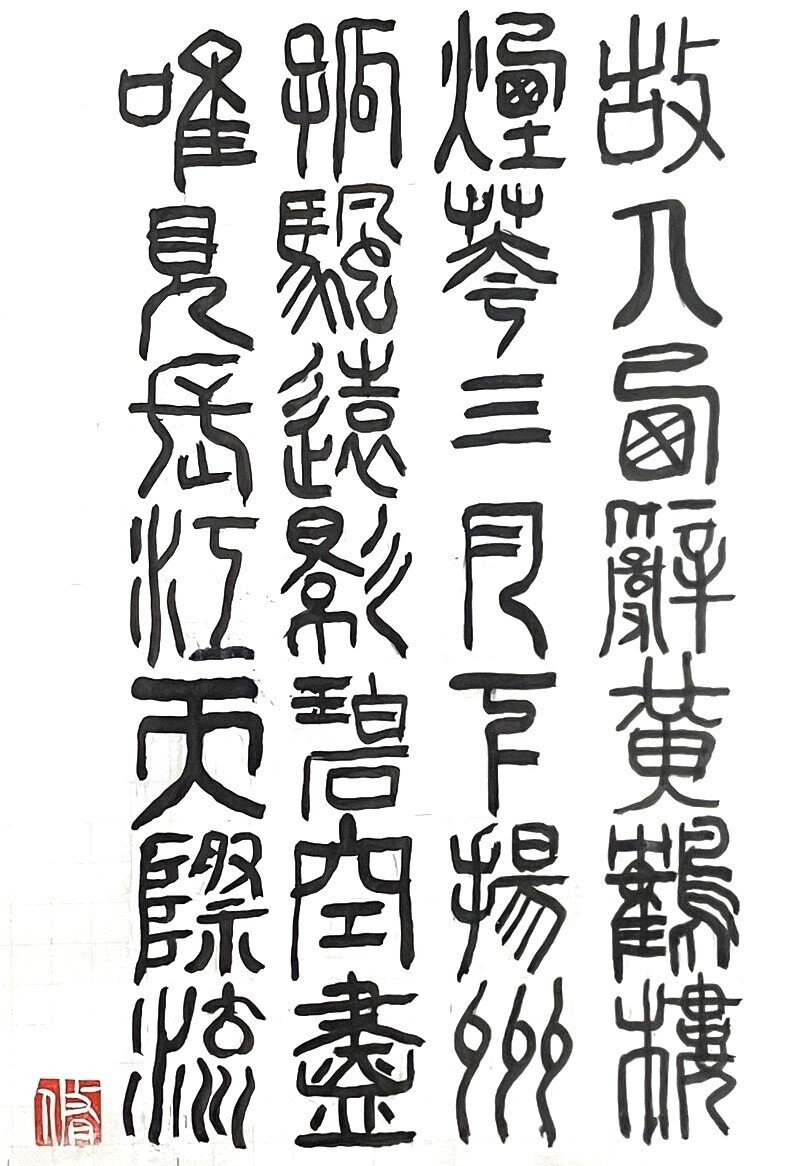 故人西辭黃鶴樓
煙華三月下揚州
孤颿遠影碧空盡
唯見長江天際流